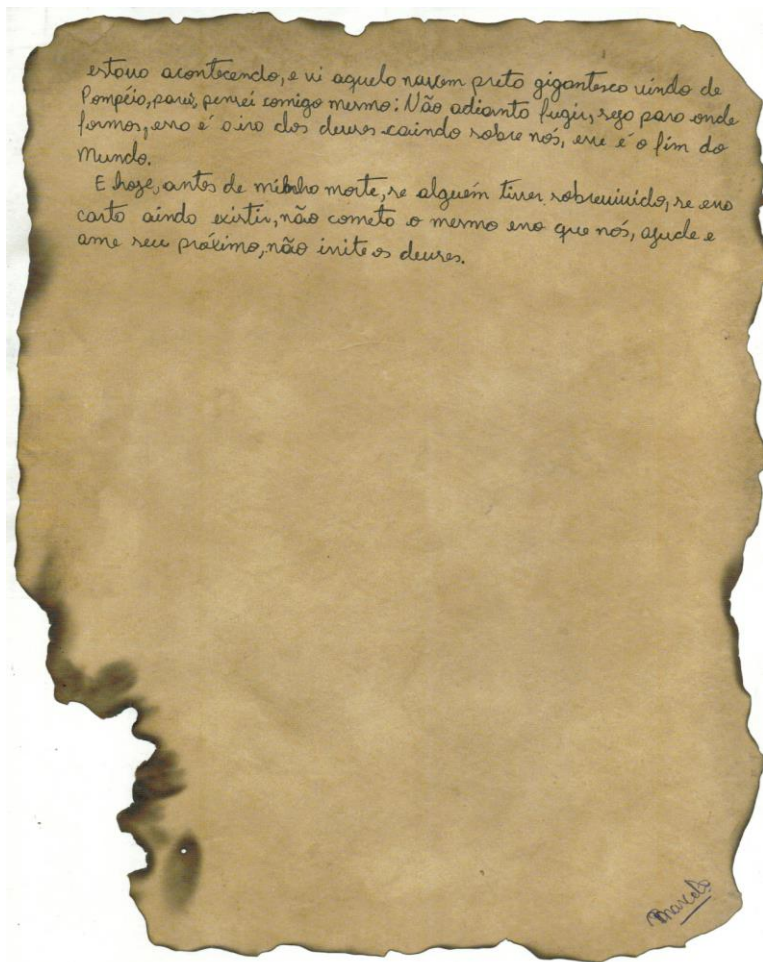 estava acontecendo, e vi aquela nuvem preta gigantesca vindo de
Pompéia, parei, pensei comigo mesmo: Não adianta fugir, seja para onde
formos, essa é a ira dos deuses caindo sobre nós, esse é o fim do
mundo.
E hoje, antes de minha morte, se alguém tiver sobrevivido, se essa
carta ainda existir, não cometa o mesmo erro que nós, ajude e
ame seu próximo, não irrite os deuses.
Marcelo